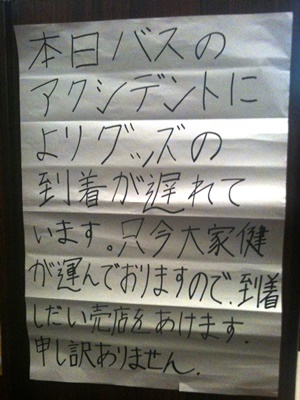 本日バスの
アクシデントに
よりグッズの
到着が遅れて
います。只今大家健
が運んでおりますので、到着
しだい売店をあけます.
申し訳ありません.